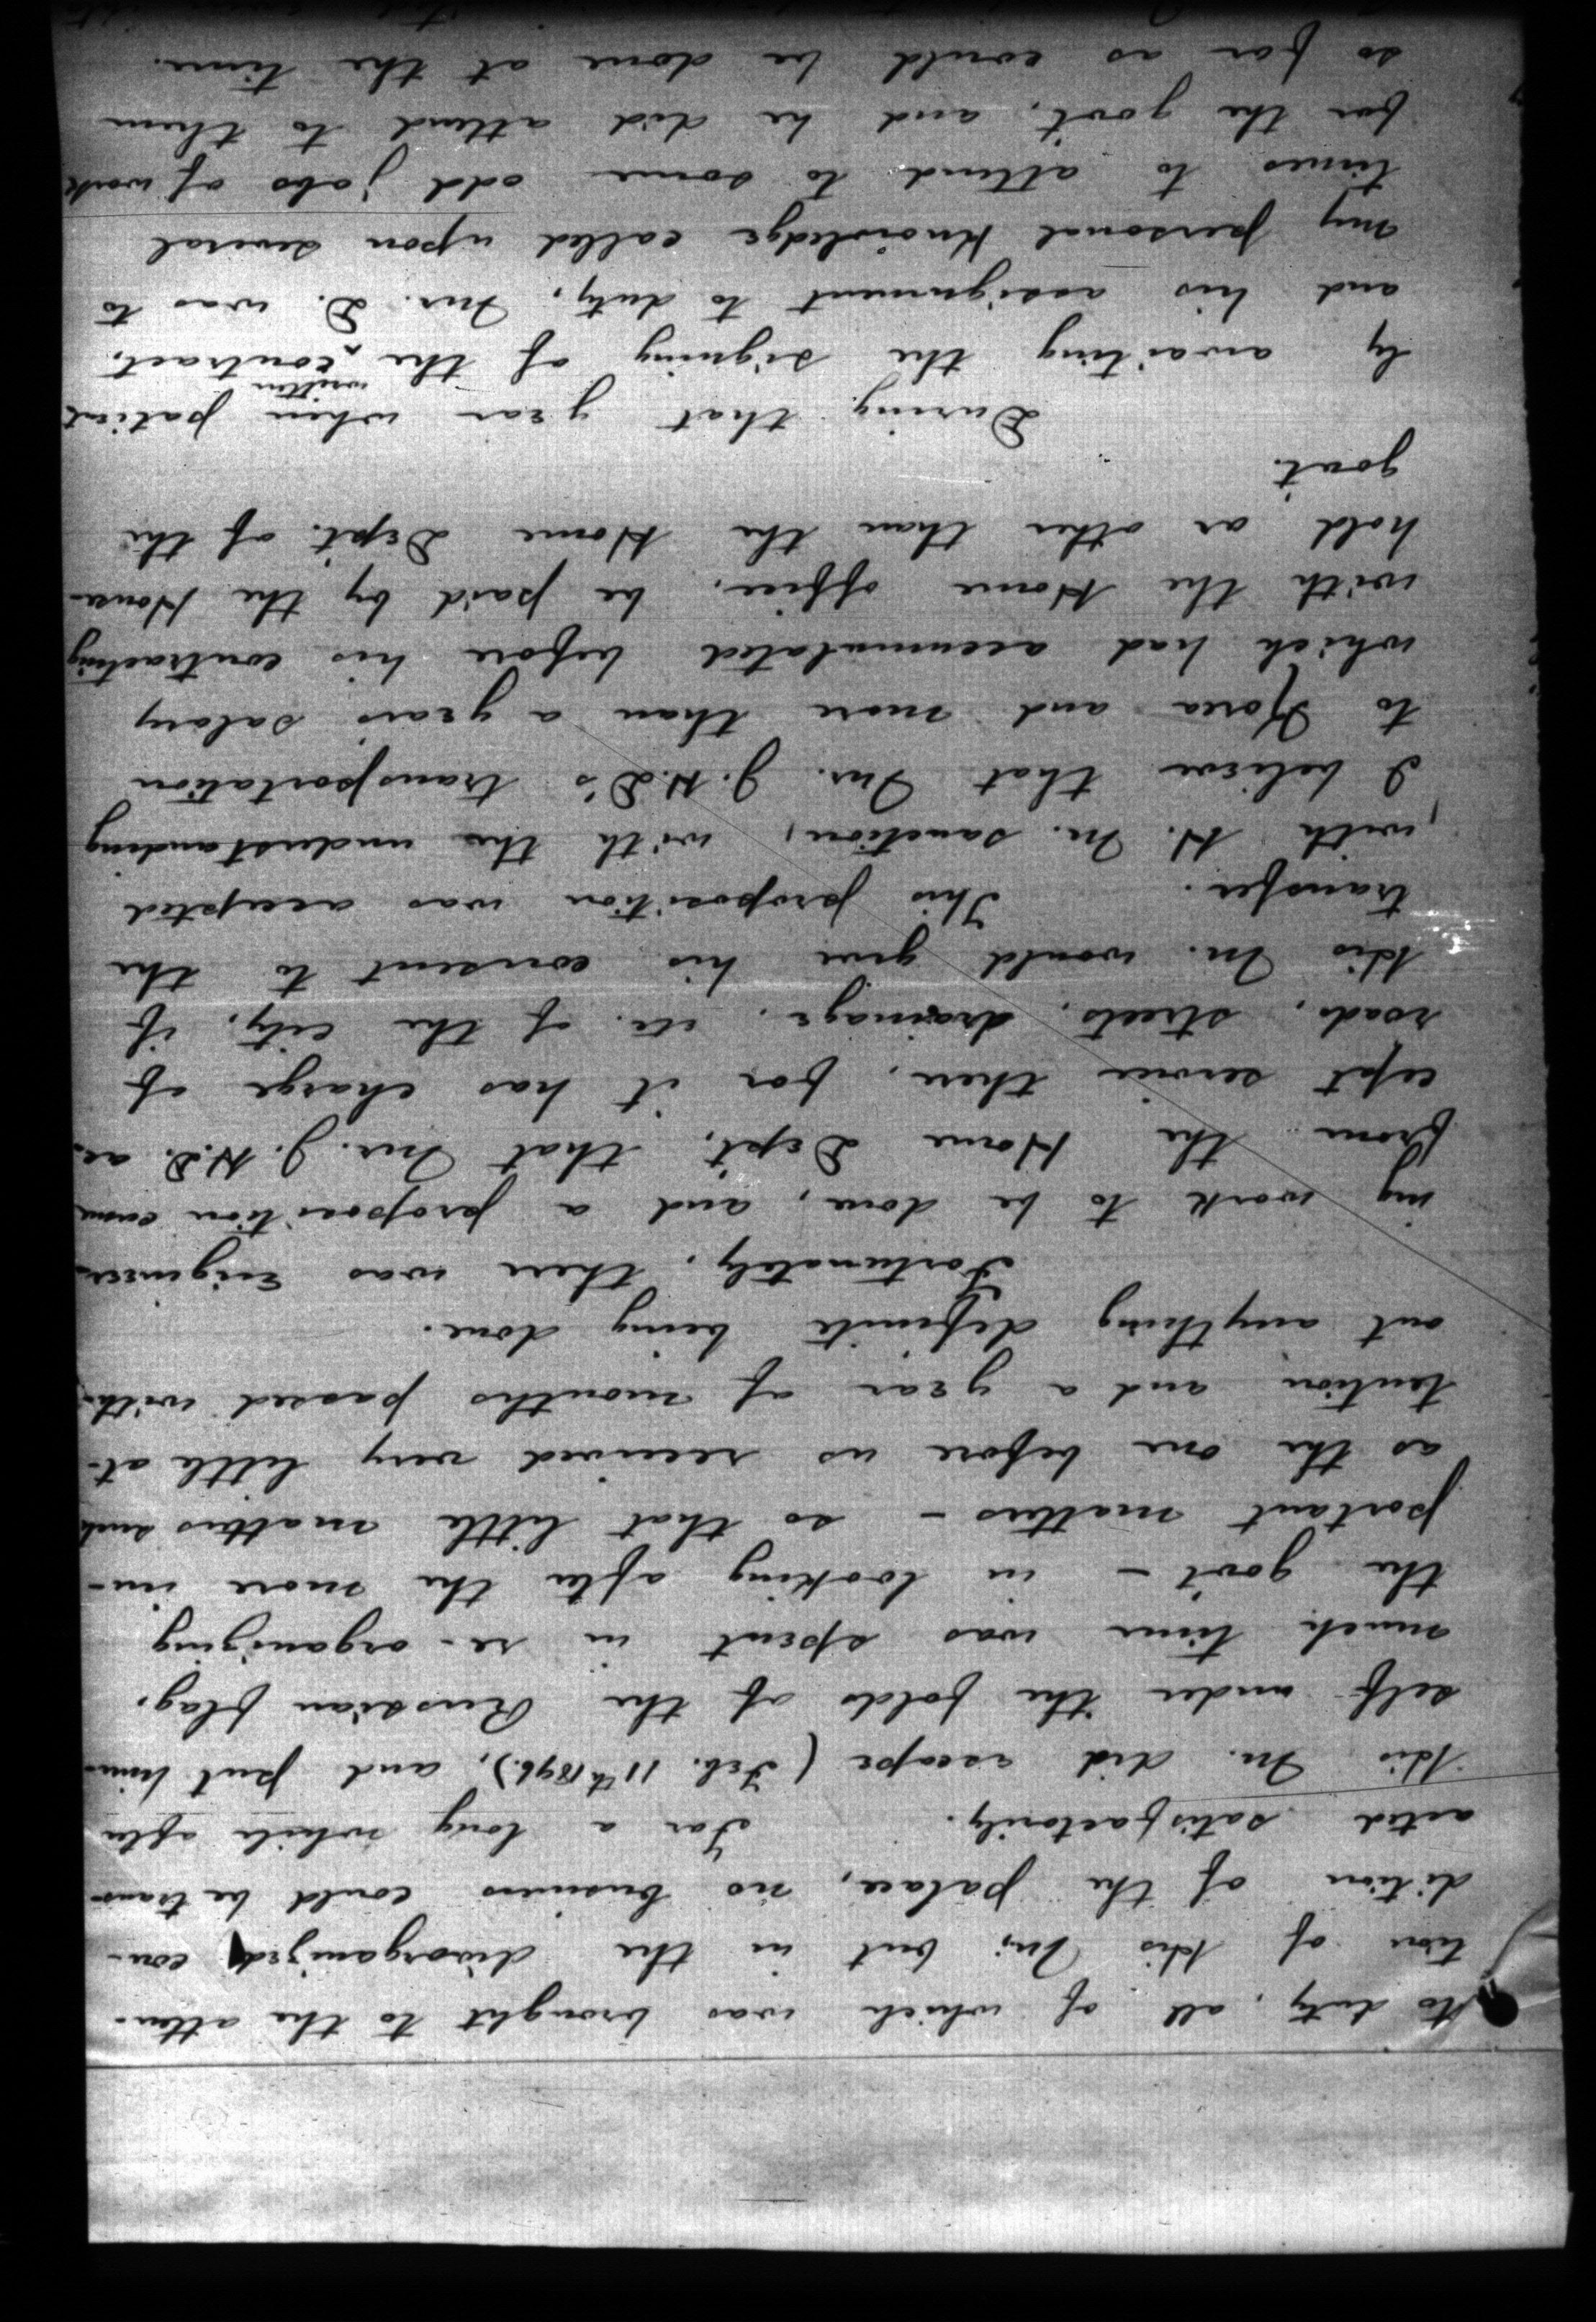 to duty, all of which was brought to the atten-
tion of His M; but in the disorganized con-
dition of the palace, no business could be trans-
acted satisfactorily. For a long while after
His M. did escape (Feb. 11th 1896.), and put him-
self under the folds of the Russian flag,
much time was spent in re-organizing
the gov't - in looking after the more im-
portant matters - so that little matters such
as the one before us received very little at-
tention and a year of months passed with-
out anything definite being done.
Fortunately, there was Engineer-
ing work to be done, and a proposition came
from the Home Dep't, that Mr. J. H. D. ac-
cept service there, for it has charge of
roads, streets, drainage, etc. of the city, if
His M. would give his consent to the
transfer. This proposition was accepted
with H. M. sanction, with the understanding
I believe that Mr. J. H. D's transportation
to Korea and more than a years salary
which had accumulated before his contracting
with the Home office, be paid by the House-
hold or other than the Home Dept. of the
gov't.
During that year when patient
ly awaiting the signing of the written contract,
and his assignment to duty, Mr. D. was to
my personal knowledge called upon several
times to attend to some odd jobs of work
for the gov't, and he did attend to them
so far as could be done at the time.